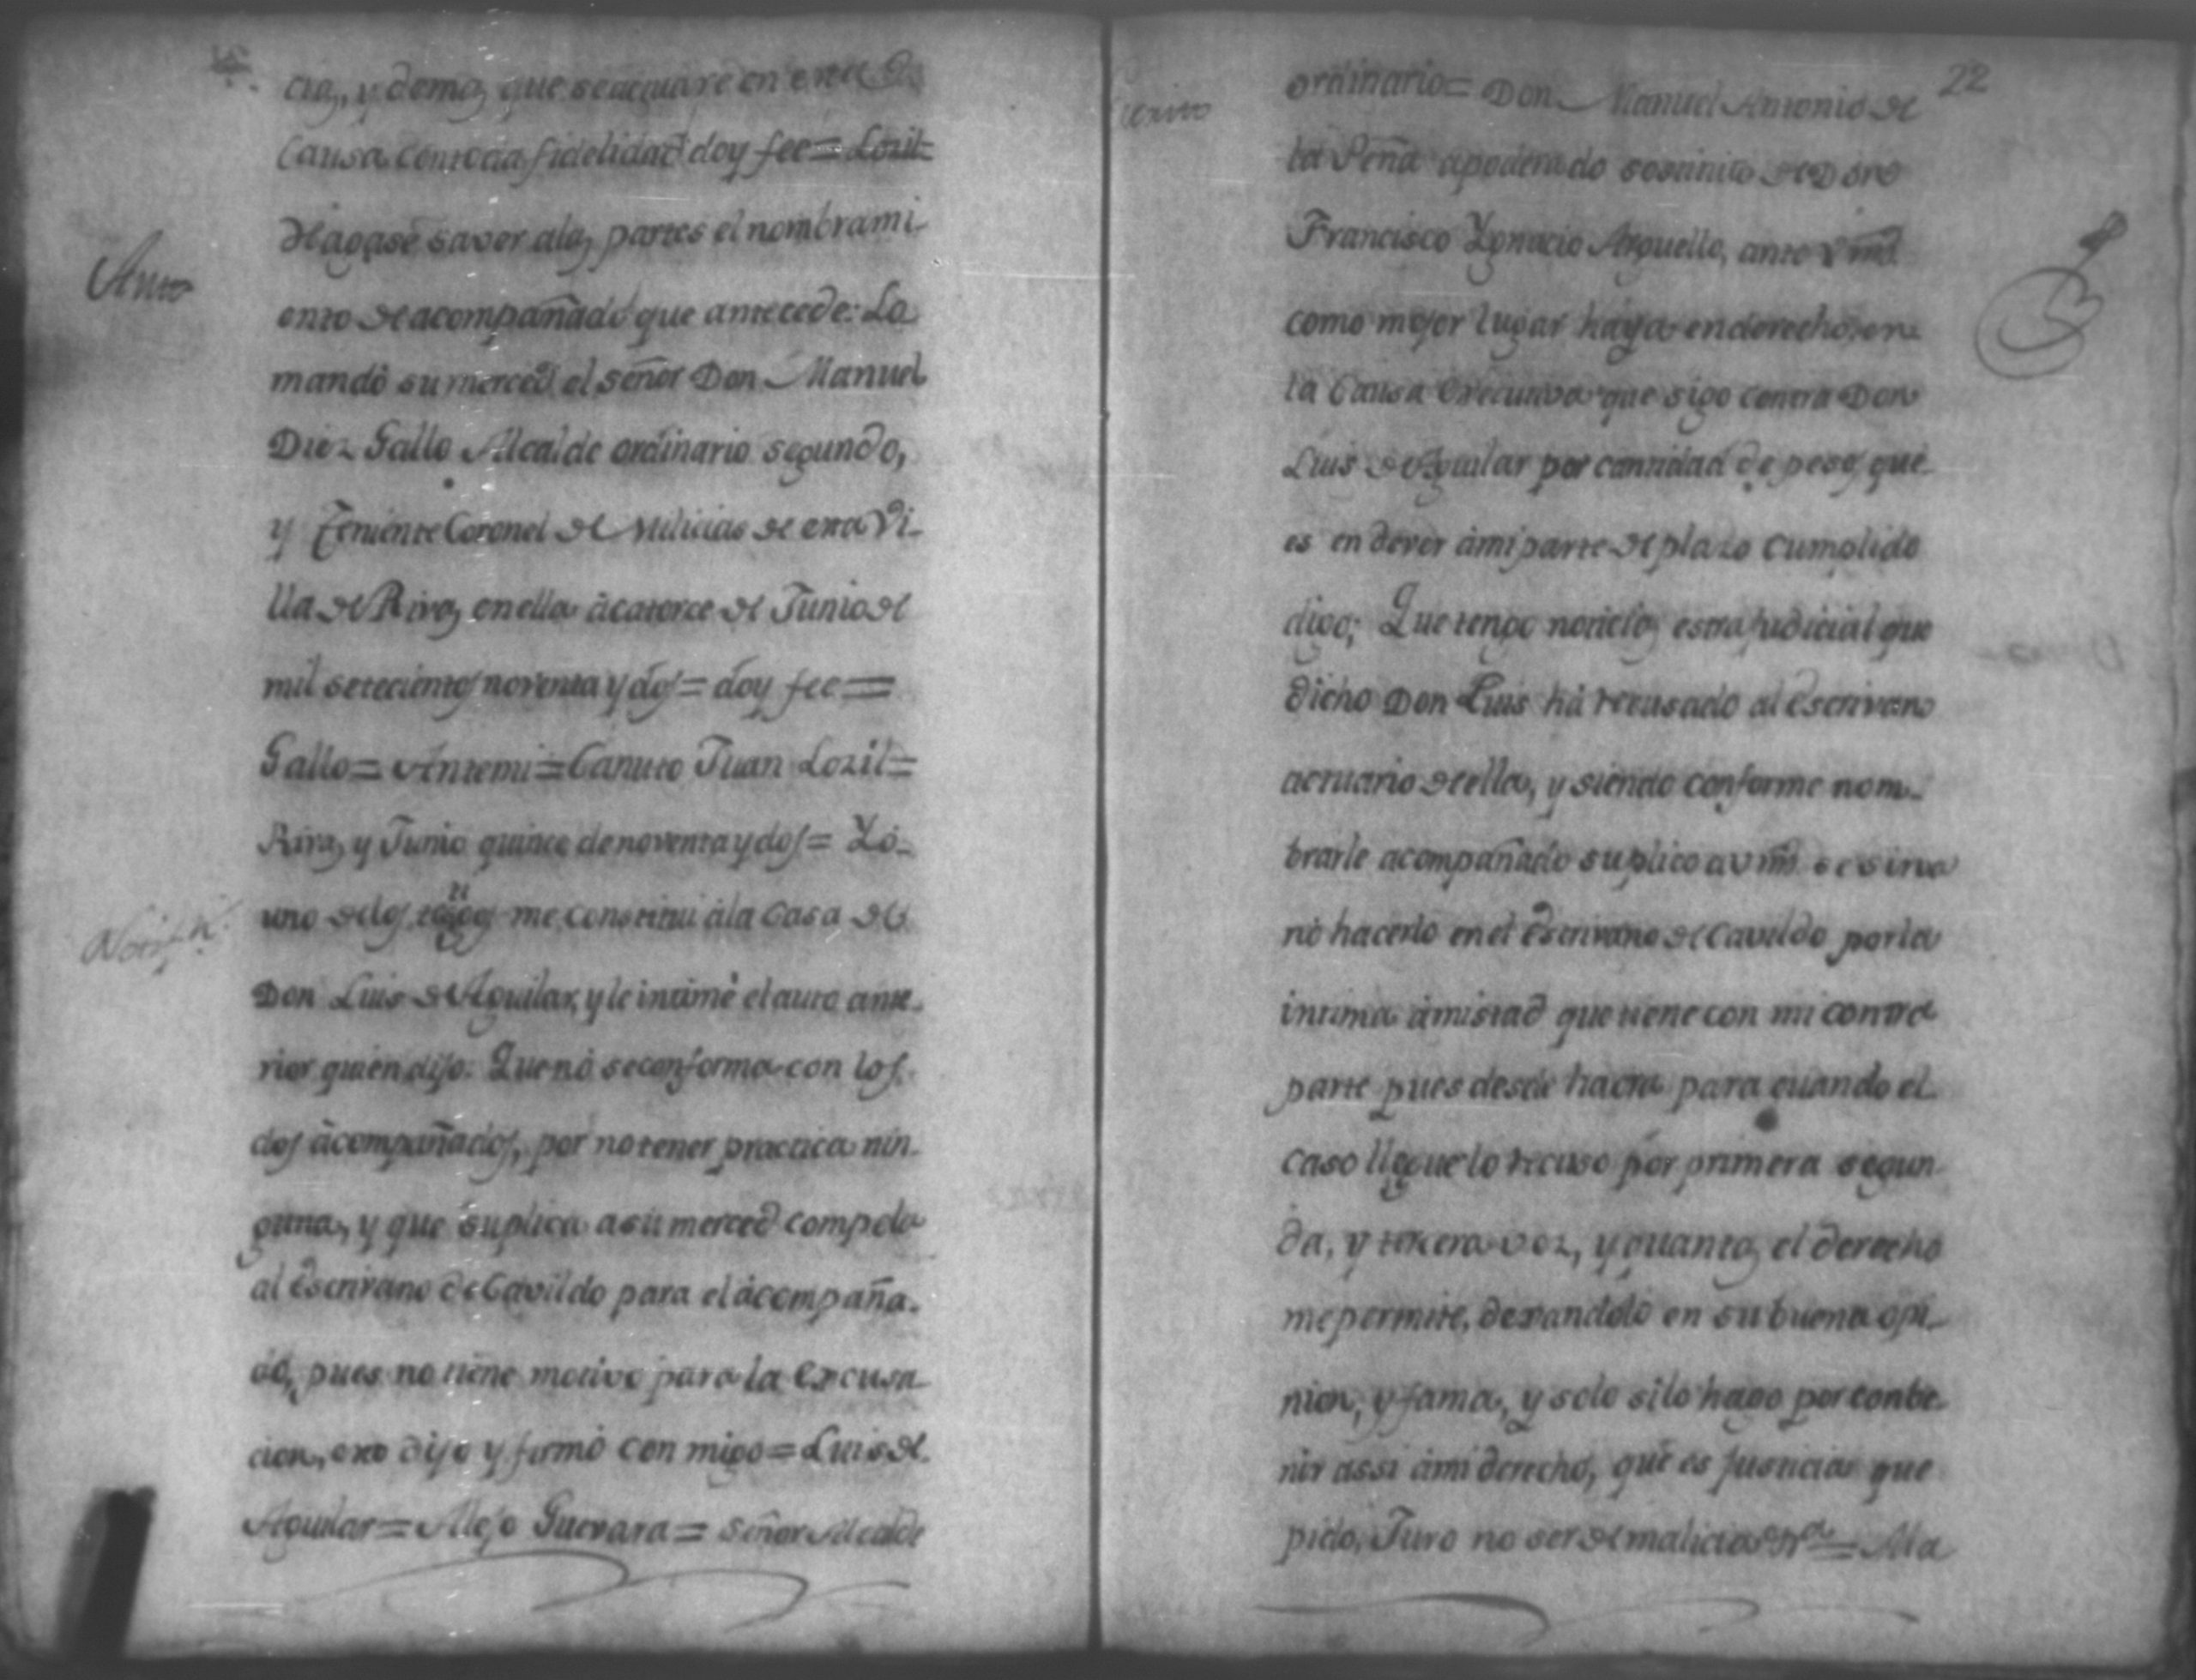 cia, y demas que se actuare en esta
Causa con toda fidelidad doy fee = Lozil=
Auto
Hagase saver alas partes el nombrami-
ento de acompañado que antecede: Lo
mandó su merced el señor Don Manuel
Diez Gallo Alcalde ordinario segundo,
y Teniente Coronel de Milicias de esta Vi-
lla de Rivas en ella á catorce de Junio de
mil setecientos noventa y dos = doy fee =
Gallo = Antemi = Canuto Juan Lozil =
Rivas y Junio quince de noventa y dos = Yó
Notifn.
uno de los tgos me constitui ála Casa de
Don Luis de Aguilar, y le intimé el auto ante-
rior quien dijo: Que nó se conforma con los
dos ácompañados, por no tener practica nin-
guna, y que suplica a su merced compela
al escrivano de Cavildo para el ácompaña-
do, pues no tiene motivo para la excusa-
cion, esto dijo y firmó con migo = Luis de
Aguilar = Alejo Guevara = Señor Alcalde
22
Escrito
ordinario = Don Manuel Antonio de
la Peña apoderado sostituto de Don
Francisco Ygnacio Arguello, ante Vmd.
como mejor lugar haya en derecho, en
la Causa executiva que sigo contra Don
Luis de Aguilar por cantidad de pesos que
es en dever ámi parte de plazo cumplido
digo; Que tengo noticias estrajudicial que
dicho Don Luis há recusado al escrivano
actuario de ella, y siendo conforme nom-
brarle acompañado suplico a vmd. se sirva
nó hacerlo en el escrivano de Cavildo por la
intima ámistad que tiene con mi contra
parte pues desde haora para cuando el
caso llegue lo recuso por primera segun-
da, y tercera voz, y quantas el derecho
me permite, dexandolo en su buena opi-
nion, y fama, y solo si lo hago por conbe-
nir assi ámi derecho, que es justicia que
pido, Juro no ser de malicia = Ma